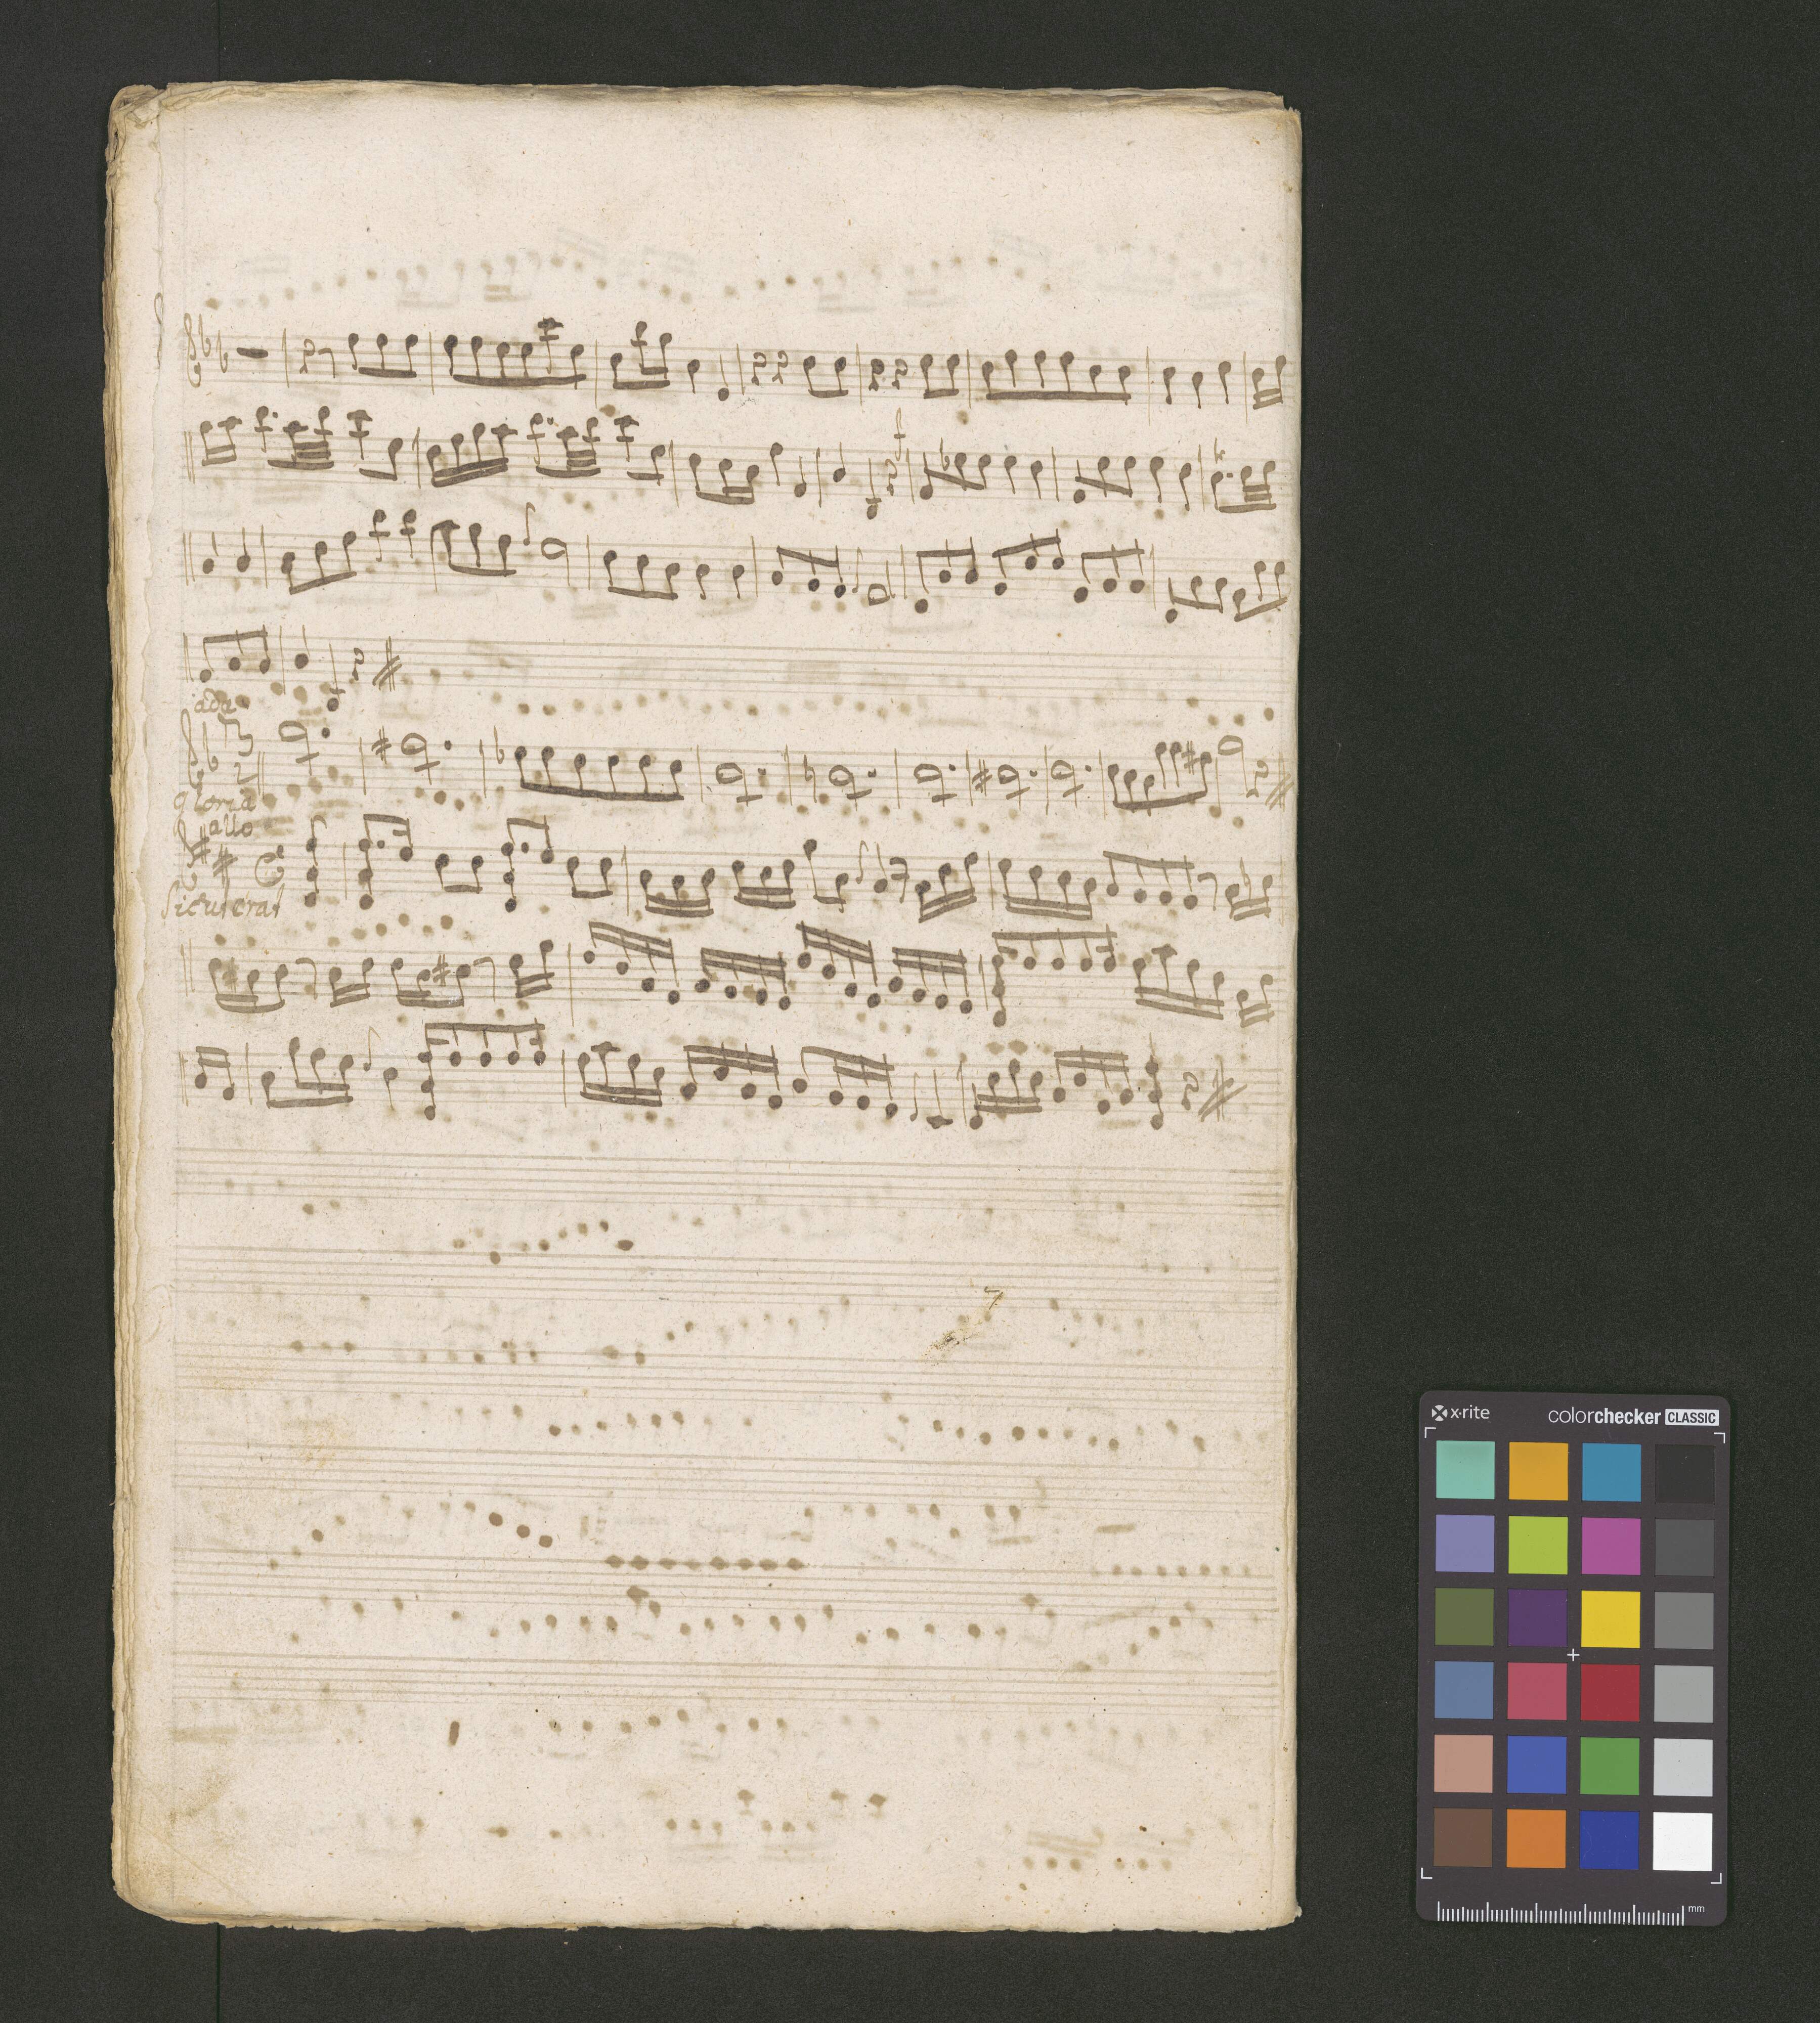 ada
gloria
allo
Sicut erat
x-rite
colorchecker CLASSIC
mm